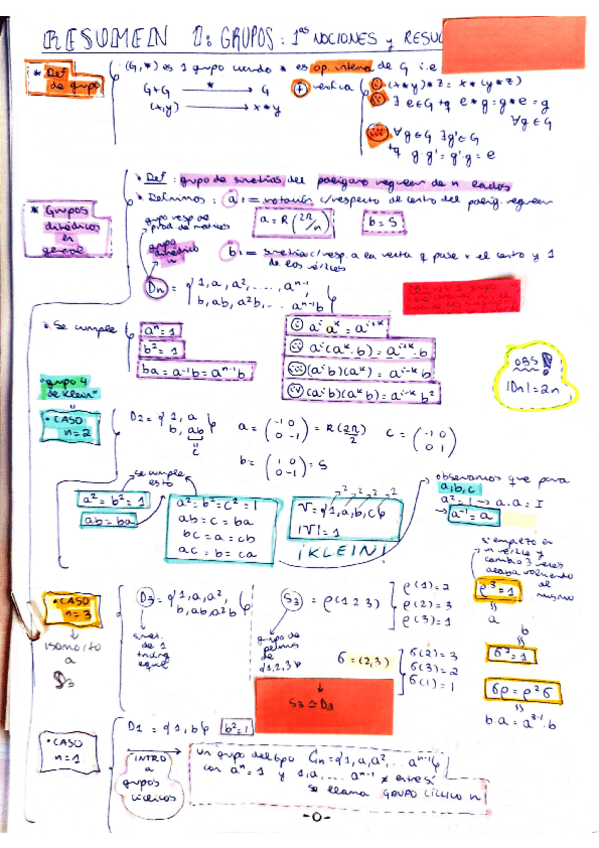 RESUMEN 1: GRUPOS: 1as NOCIONES y RESUL
* Def de grupo
· (G,*) es 1 grupo cuando * es op. interna de G i.e
G+G → G
(x,y) → x*y
+ verifica
(x*y)*z = x*(y*z)
∃ e∈G tq e*g=g*e=g
∀g∈G
∀g∈G ∃g'∈G
tq g·g'=g'·g=e
* Grupos diédricos en general
* Def: grupo de simetrías del polígono regular de n lados
* Definimos: a := rotación c/respecto de centro del políg. regular
a = R(2π/n)
b = S
grupo resp de prod de matrices
grupo diédrico n
b := simetría c/resp. a la recta q pasa x el centro y 1 de los vértices
Dn = {1, a, a², ..., aⁿ⁻¹,
b, ab, a²b, .. aⁿ⁻¹b}
* Se cumple
aⁿ=1
b²=1
ba=a⁻¹b=aⁿ⁻¹b
aⁱ aᵏ = aⁱ⁺ᵏ
aⁱ(aᵏ·b) = aⁱ⁺ᵏ·b
(aⁱb)(aᵏ) = aⁱ⁻ᵏb
(aⁱb)(aᵏb) = aⁱ⁻ᵏb²
OBS!
|Dn|=2n
"grupo 4 de Klein"
• CASO n=2
D2={1, a,
b, ab}
c
a = (-1 0 / 0 -1) = R(2π/2)
c = (-1 0 / 0 1)
b = (1 0 / 0 -1) = S
se cumple esto
a²=b²=1
ab=ba
a²=b²=c²=1
ab=c=ba
bc=a=cb
ac=b=ca
V={1,a,b,c}
|V|=1
¡KLEIN!
observamos que para a,b,c
a²=1 → a·a=I
→ a⁻¹=a
• CASO n=3
isomorfo a D3
D3={1,a,a²,
b,ab,a²b}
simet. de 1 triáng equil
S3 = ρ(1 2 3)
grupo de perms de {1,2,3}
ρ(1)=2
ρ(2)=3
ρ(3)=1
σ=(2,3)
σ(2)=3
σ(3)=2
σ(1)=1
S3≅D3
si empiezo en un vértice y cambio 3 veces acaba volviendo al mismo
ρ³=1
a
b
σ²=1
σρ=ρ²σ
ba=a³⁻¹·b
• CASO n=1
D1={1,b} b²=1
INTRO a grupos cíclicos
un grupo del tipo Cn={1,a,a²,...aⁿ⁻¹}
con aⁿ=1 y 1,a,...aⁿ⁻¹ ≠ entre sí
se llama GRUPO CÍCLICO n
-0-